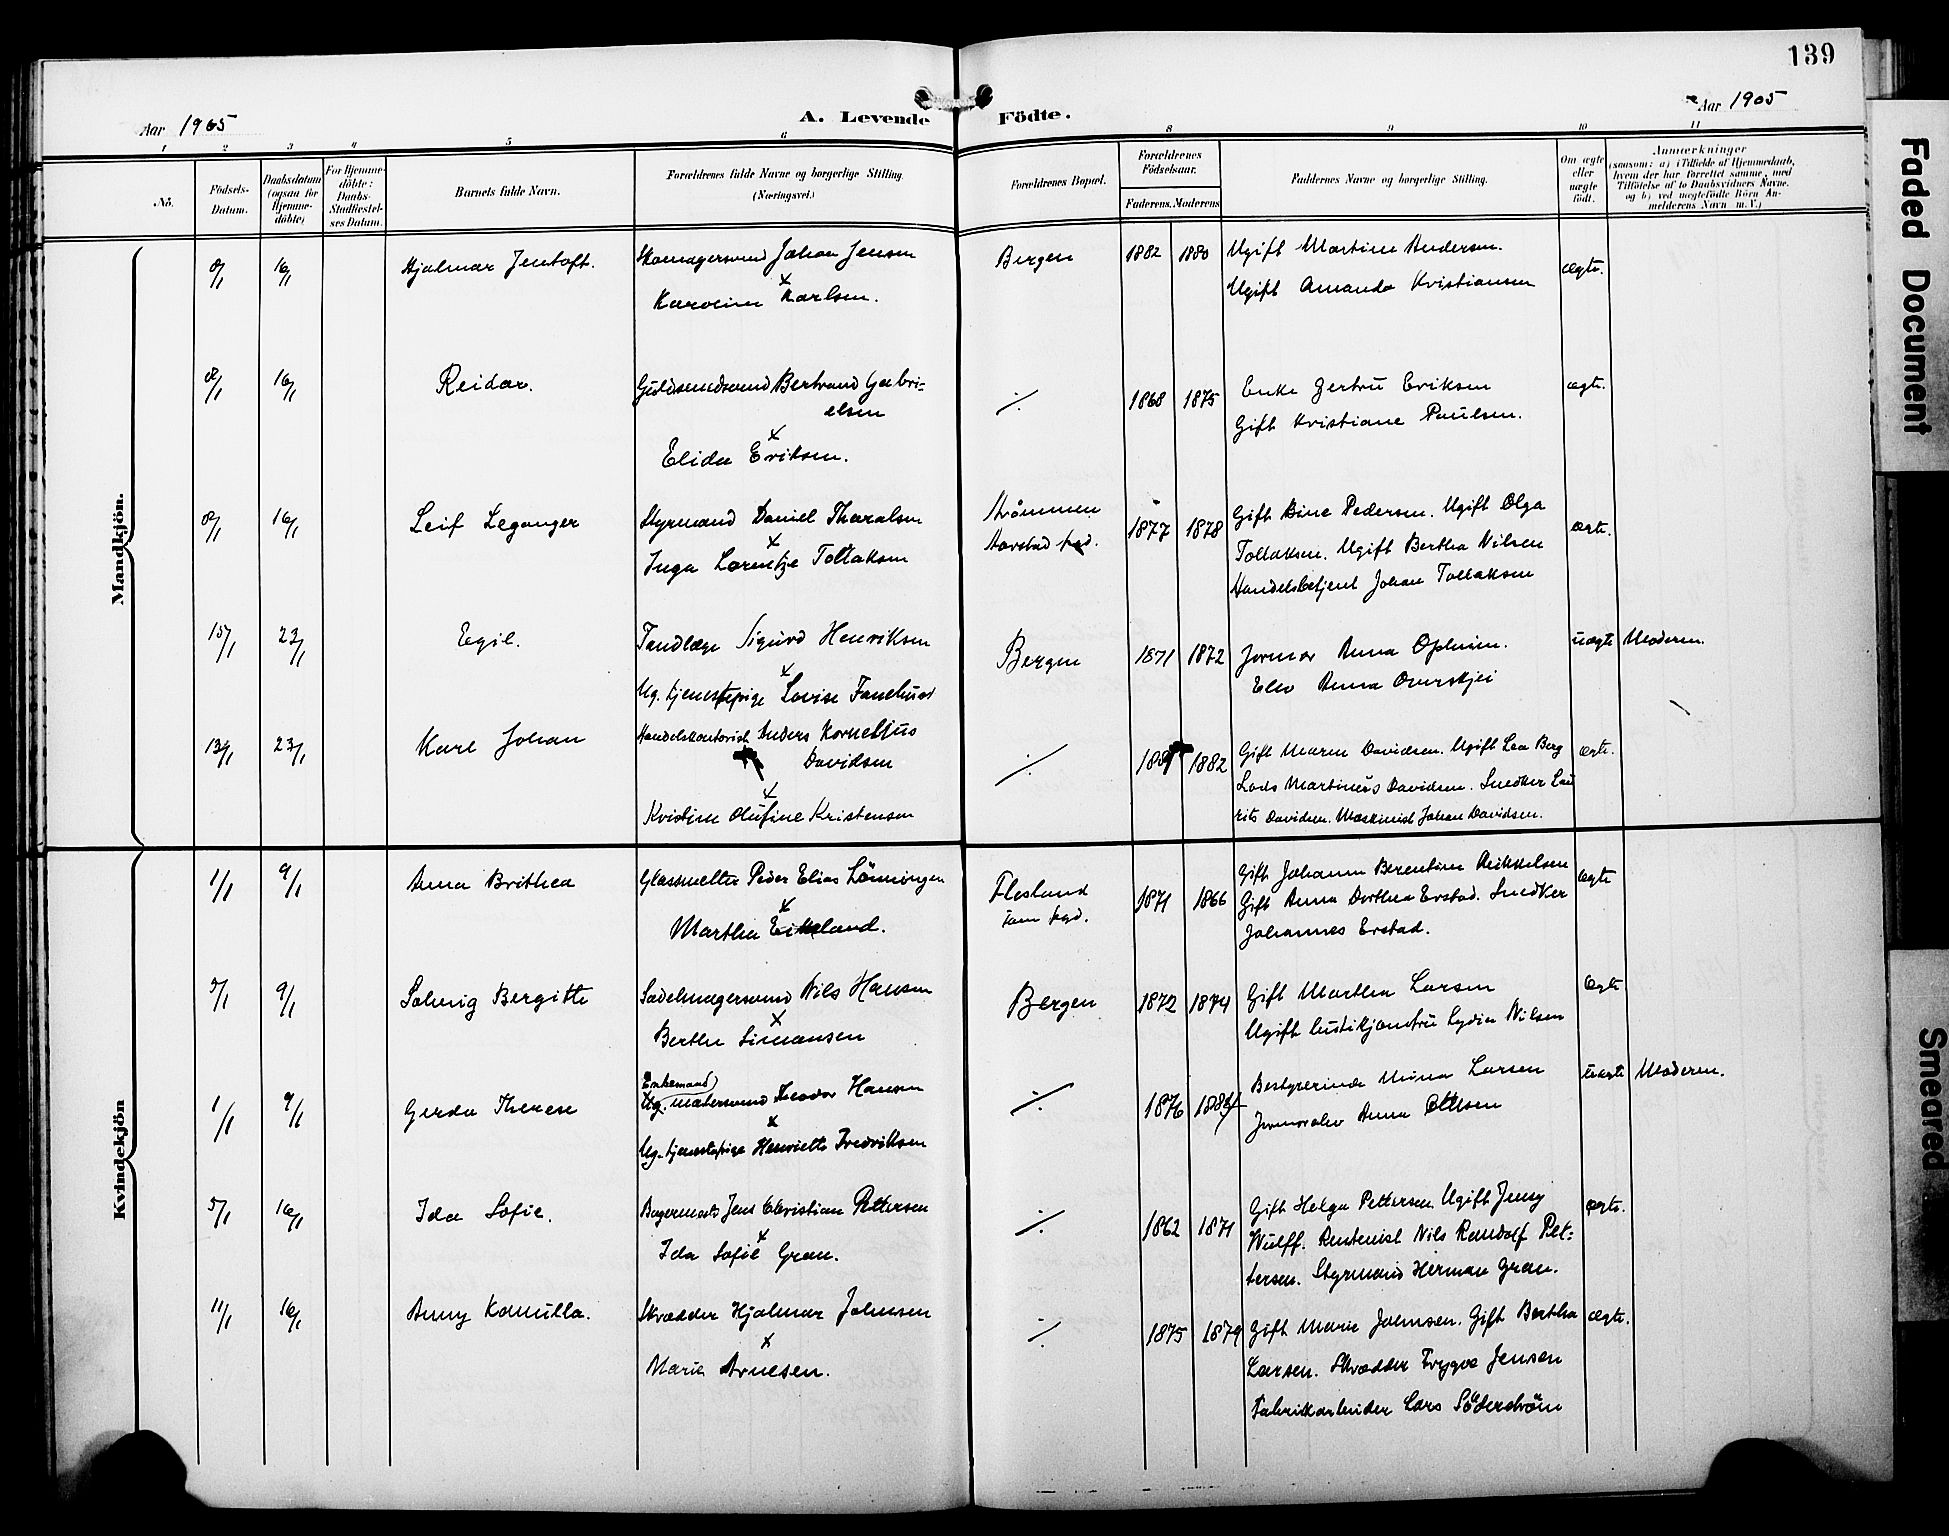 139
Aar 1905
A. Levende Födte.
Aar 1905
1 2 3 4 5 6 8 9 10 11
No.
Födsels-Datum.
Daabsdatum (ogsaa for Hjemme-döbte)
For Hjemme-döbte: Daabs-Stadfæstel-ses Datum.
Barnets fulde Navn.
Forældrenes fulde Navne og borgerlige Stilling. (Næringsvei.)
Forældrenes Bopæl.
Forældrenes Födselsaar.
Faderens. Moderens
Faddernes Navne og borgerlige Stilling.
Om ægte eller uægte födt.
Anmærkninger
(saasom: a) i Tilfælde af Hjemmedaab, hvem der har forrettet samme, med Tilföielse af to Daabsvidners Navne. og b) ved uægtefödte Börn An-melderens Navn m. V.)
Mandkjön.
8/1 16/1 Hjalmar Jentoft. Skomagersvend Johan Jensen Bergen 1882 1880 Ugift Martine Andersen. ægte.
x
Karoline Karlsen. Ugift Amanda Kristiansen
8/1 16/1 Reidar. Guldsmedsvend Bertrand Gabri- ./. 1868 1875 Enke Jertru Eriksen ægte.
elsen Gift Kristiane Paulsen.
x
Elida Eriksen.
8/1 16/1 Leif Leganger Styrmand Daniel Tharalsen Strömmen 1877 1878 Gift Bine Pedersen. Ugift Olga ægte.
x
Inga Lorentze Tollaksen Aarstad pgd. Tollaksen. Ugift Bertha Nilsen
Handelsbetjent Johan Tollaksen
15/1 23/1 Egil. Tandlæge Sigurd Henriksen Bergen 1871 1872 Jormor Anna Opheim. uægte Moderen.
x
Ug. tjenestepige Lovise Fanehust Elev Anna Overskjei
13/1 23/1 Karl Johan Handelskontorist Anders Kornelius ./. 1882 Gift Maren Davidsen. Ugift Lea Berg ægte.
Davidsen Lods Martinius Davidsen. Snedker Lau
x
Kristine Olufine Kristensen rits Davidsen. Maskinist Johan Davidsen.
Kvindekjön
1/1 9/1 Anna Brithea Glassmelter Peder Elias Lönningen Flesland 1871 1866 Gift Johanna Berentine Mikkelsen ægte
x
Martha Eikeland. Fane pgd. Gift Anna Dorthea Erstad. Snedker
Johannes Erstad.
5/1 9/1 Solveig Bergitte Sadelmagersvend Nils Hansen Bergen 1872 1874 Gift Martha Larsen ægte
x
Berthe Simonsen Ugift Lydia Nilsen
1/1 9/1 Gerda Therese Enkemand
Ug. malersvend Teodor Hansen ./. 1876 Bestyrerinde Mina Larsen uægte Moderen.
x
Ug. tjenestepige Henriette Fredriksen Jormorelev Anna Ottesen
5/1 16/1 Ida Sofie. Bagermester Jens Christian Pettersen ./. 1862 1871 Gift Helga Pettersen Ugift Jenny ægte.
x
Ida Sofie Gran. Wulff. Rentenist Nils Randolf Pet-
tersen. Styrmand Herman Gran.
11/1 16/1 Anny Kamilla. Skrædder Hjalmar Johnsen ./. 1875 1879 Gift Marie Johnsen. Gift Bertha ægte.
x
Marie Arnesen. Larsen. Skrædder Trygve Jensen
Fabrikarbeider Lars Söderström
Faded Document
Smeared